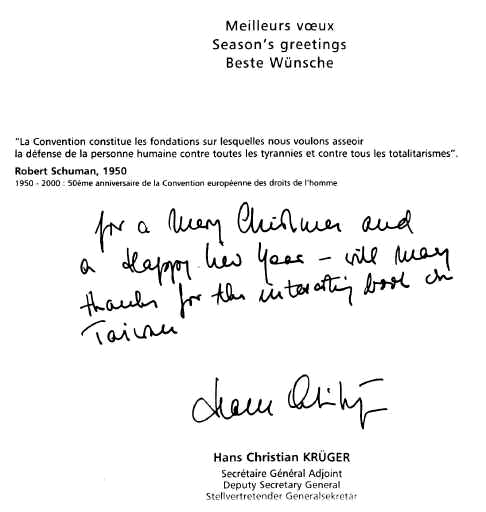 Meilleurs vœux
Season's greetings
Beste Wünsche
"La Convention constitue les fondations sur lesquelles nous voulons asseoir
la défense de la personne humaine contre toutes les tyrannies et contre tous les totalitarismes".
Robert Schuman, 1950
1950 - 2000 : 50ème anniversaire de la Convention européenne des droits de l'homme
for a Merry Christmas and
a Happy New Year – with many
thanks for the interesting book on
Taiwan
Hans Christian KRÜGER
Secrétaire Général Adjoint
Deputy Secretary General
Stellvertretender Generalsekretär